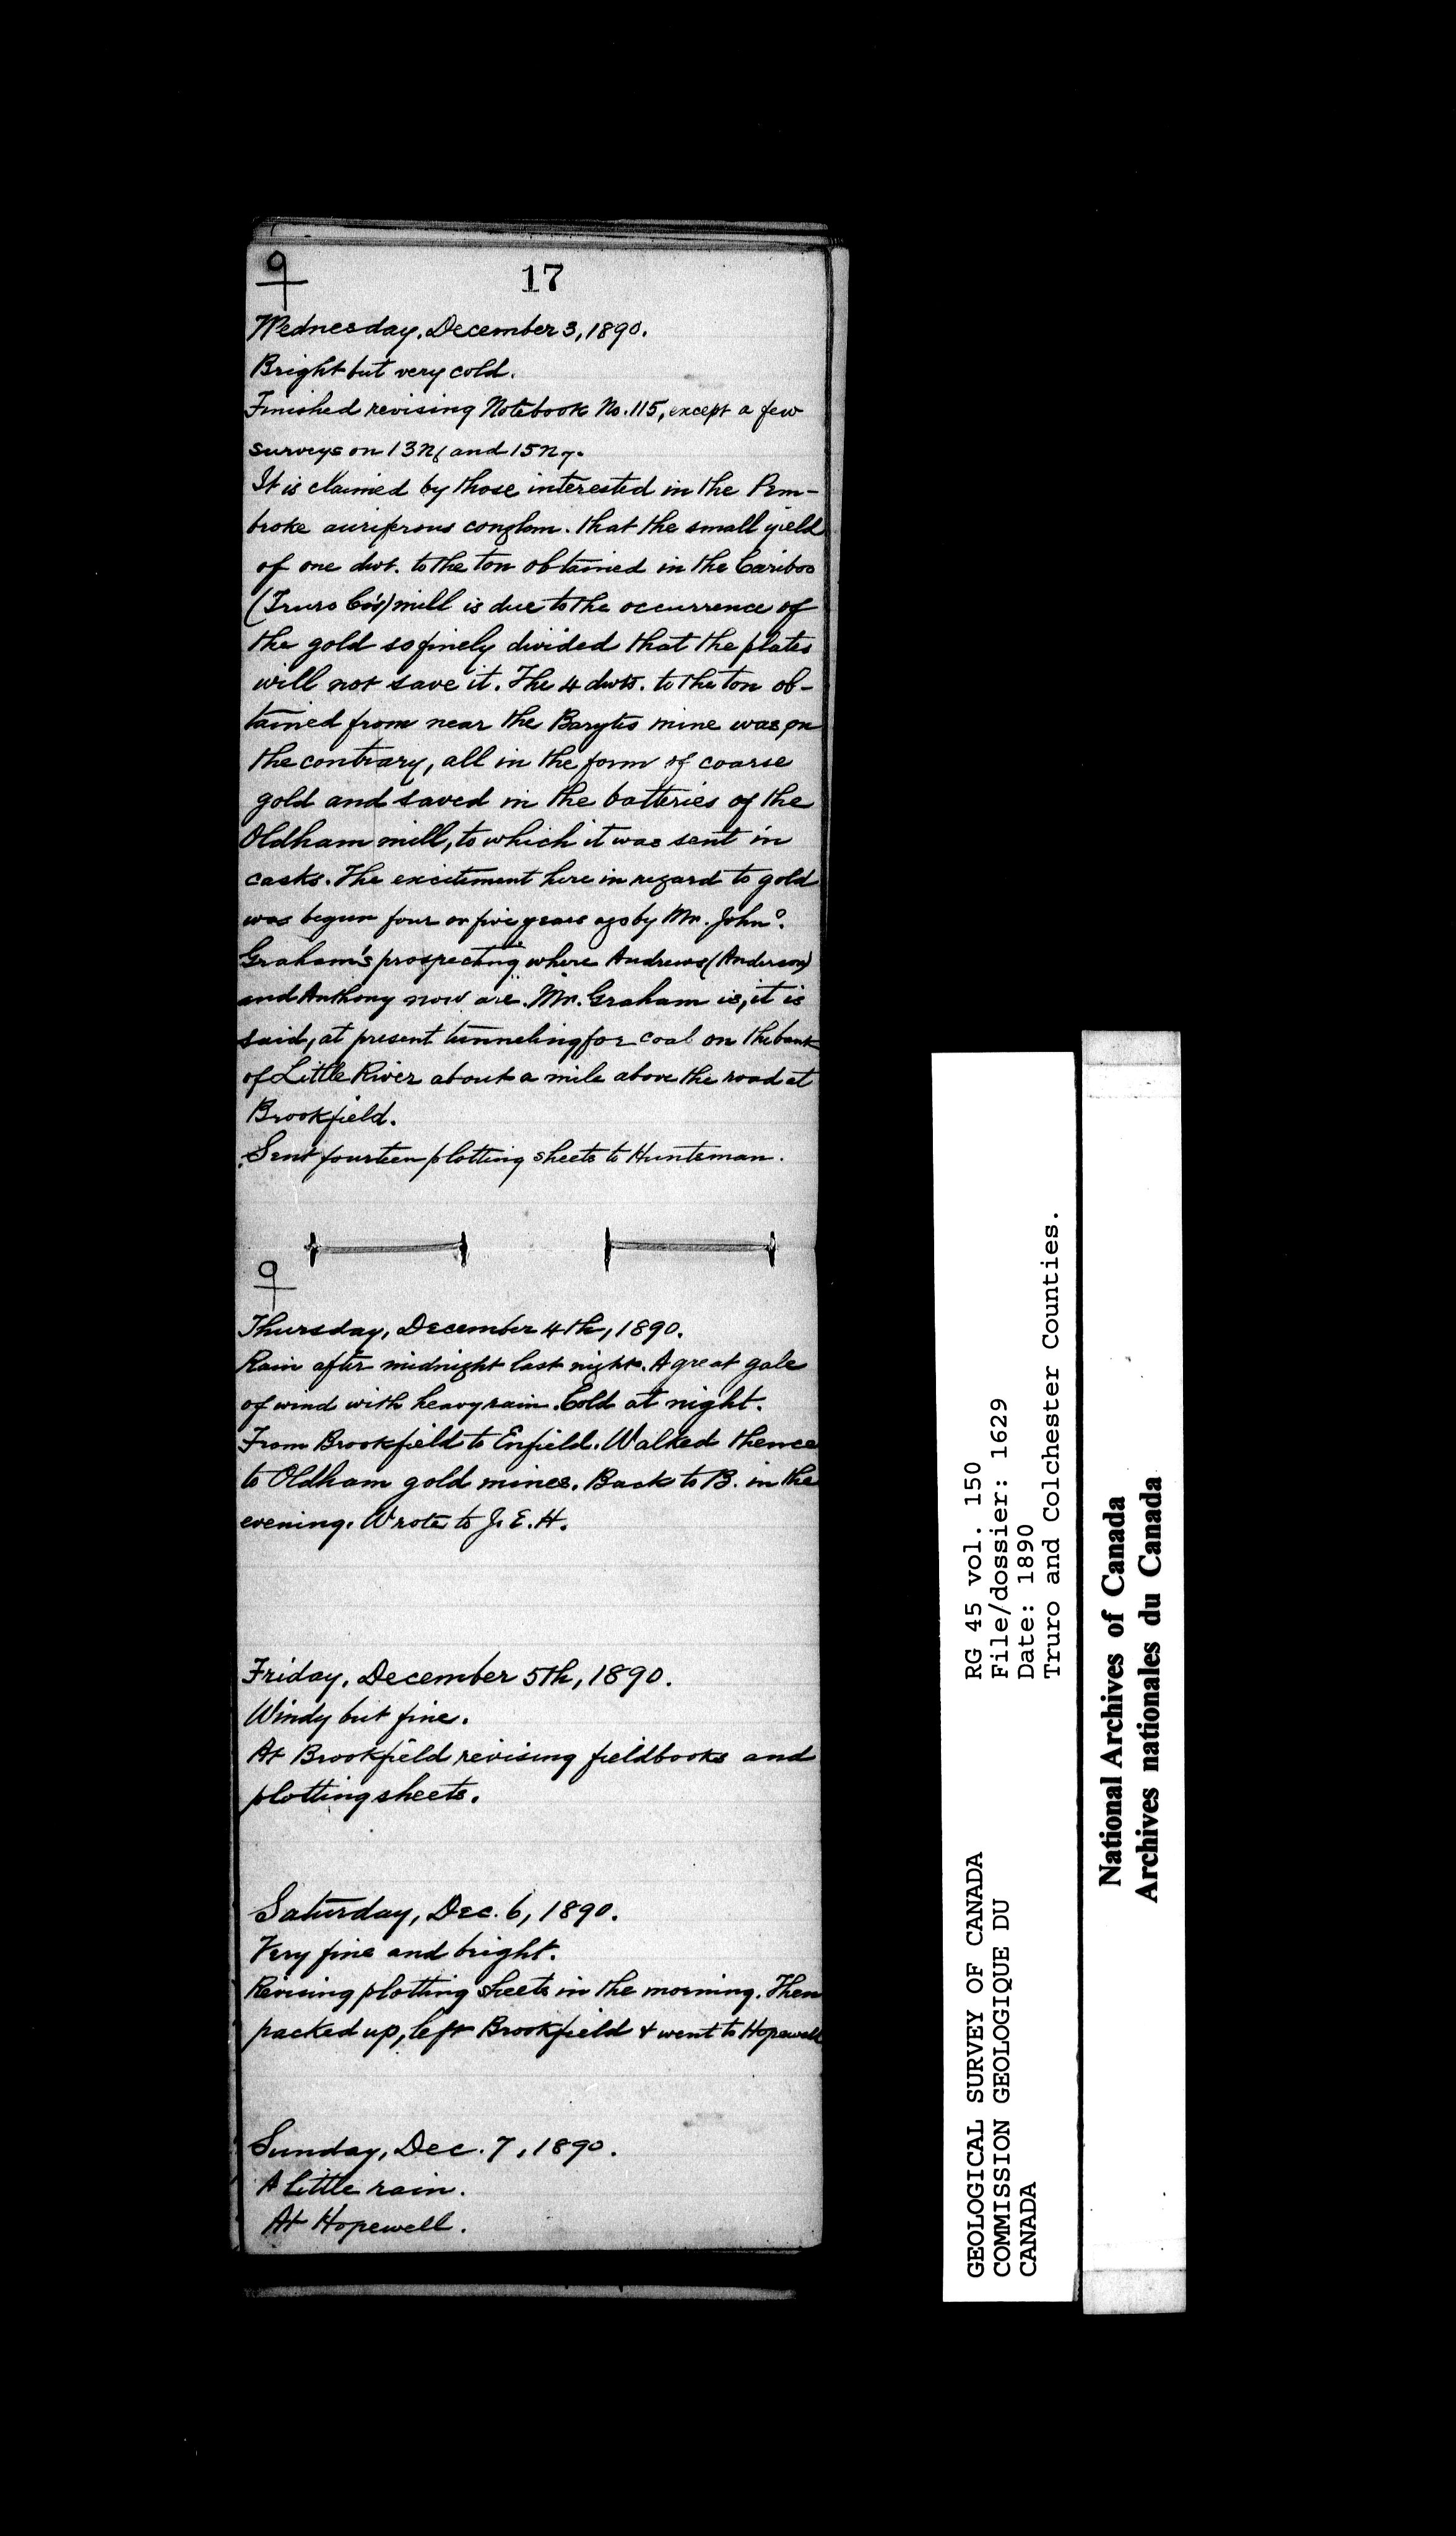 17
Wednesday, December 3, 1890.
Bright but very cold.
Finished revising Notebook No. 115, except a few
surveys on 13 and 15
It is claimed by those interested in the Pem-
broke auriferous conglom. that the small yield
of one dwt. to the ton obtained in the Cariboo
(Truro Co's) mill is due to the occurrence of
the gold so finely divided that the plates
will not save it. The 4 dwts. to the ton ob-
tained from near the Barytes mine was on
the contrary, all in the form of coarse
gold and saved in the batteries of the
Oldham mill, to which it was sent in
casks. The excitement here in regard to gold
was begun four or five years ago by Mr. John
Graham's prospecting where Andrews (Anderson)
and Anthony now are. Mr. Graham is, it is
said, at present tunneling for coal on the bank
of Little River about a mile above the road at
Brookfield.
Sent fourteen plotting sheets to Huntsman.
Thursday, December 4th, 1890.
Rain after midnight last night. A great gale
of wind with heavy rain. Cold at night.
From Brookfield to Enfield. Walked thence
to Oldham gold mines. Back to B. in the
evening. Wrote to J. E. H.
Friday, December 5th, 1890.
Windy but fine.
At Brookfield revising fieldbooks and
plotting sheets.
Saturday, Dec. 6, 1890.
Very fine and bright.
Revising plotting sheets in the morning. Then
packed up, left Brookfield & went to Hopewell
Sunday, Dec. 7, 1890.
A little rain.
At Hopewell.
GEOLOGICAL SURVEY OF CANADA
COMMISSION GEOLOGIQUE DU
CANADA
RG 45 vol. 150
File/dossier: 1629
Date: 1890
Truro and Colchester Counties.
National Archives of Canada
Archives nationales du Canada